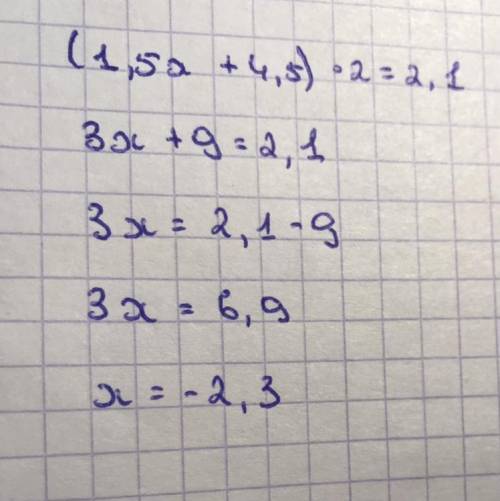 (1,5x + 4,5) · 2 = 2,1
3x + 9 = 2,1
3x = 2,1 - 9
3x = 6,9
x = - 2,3